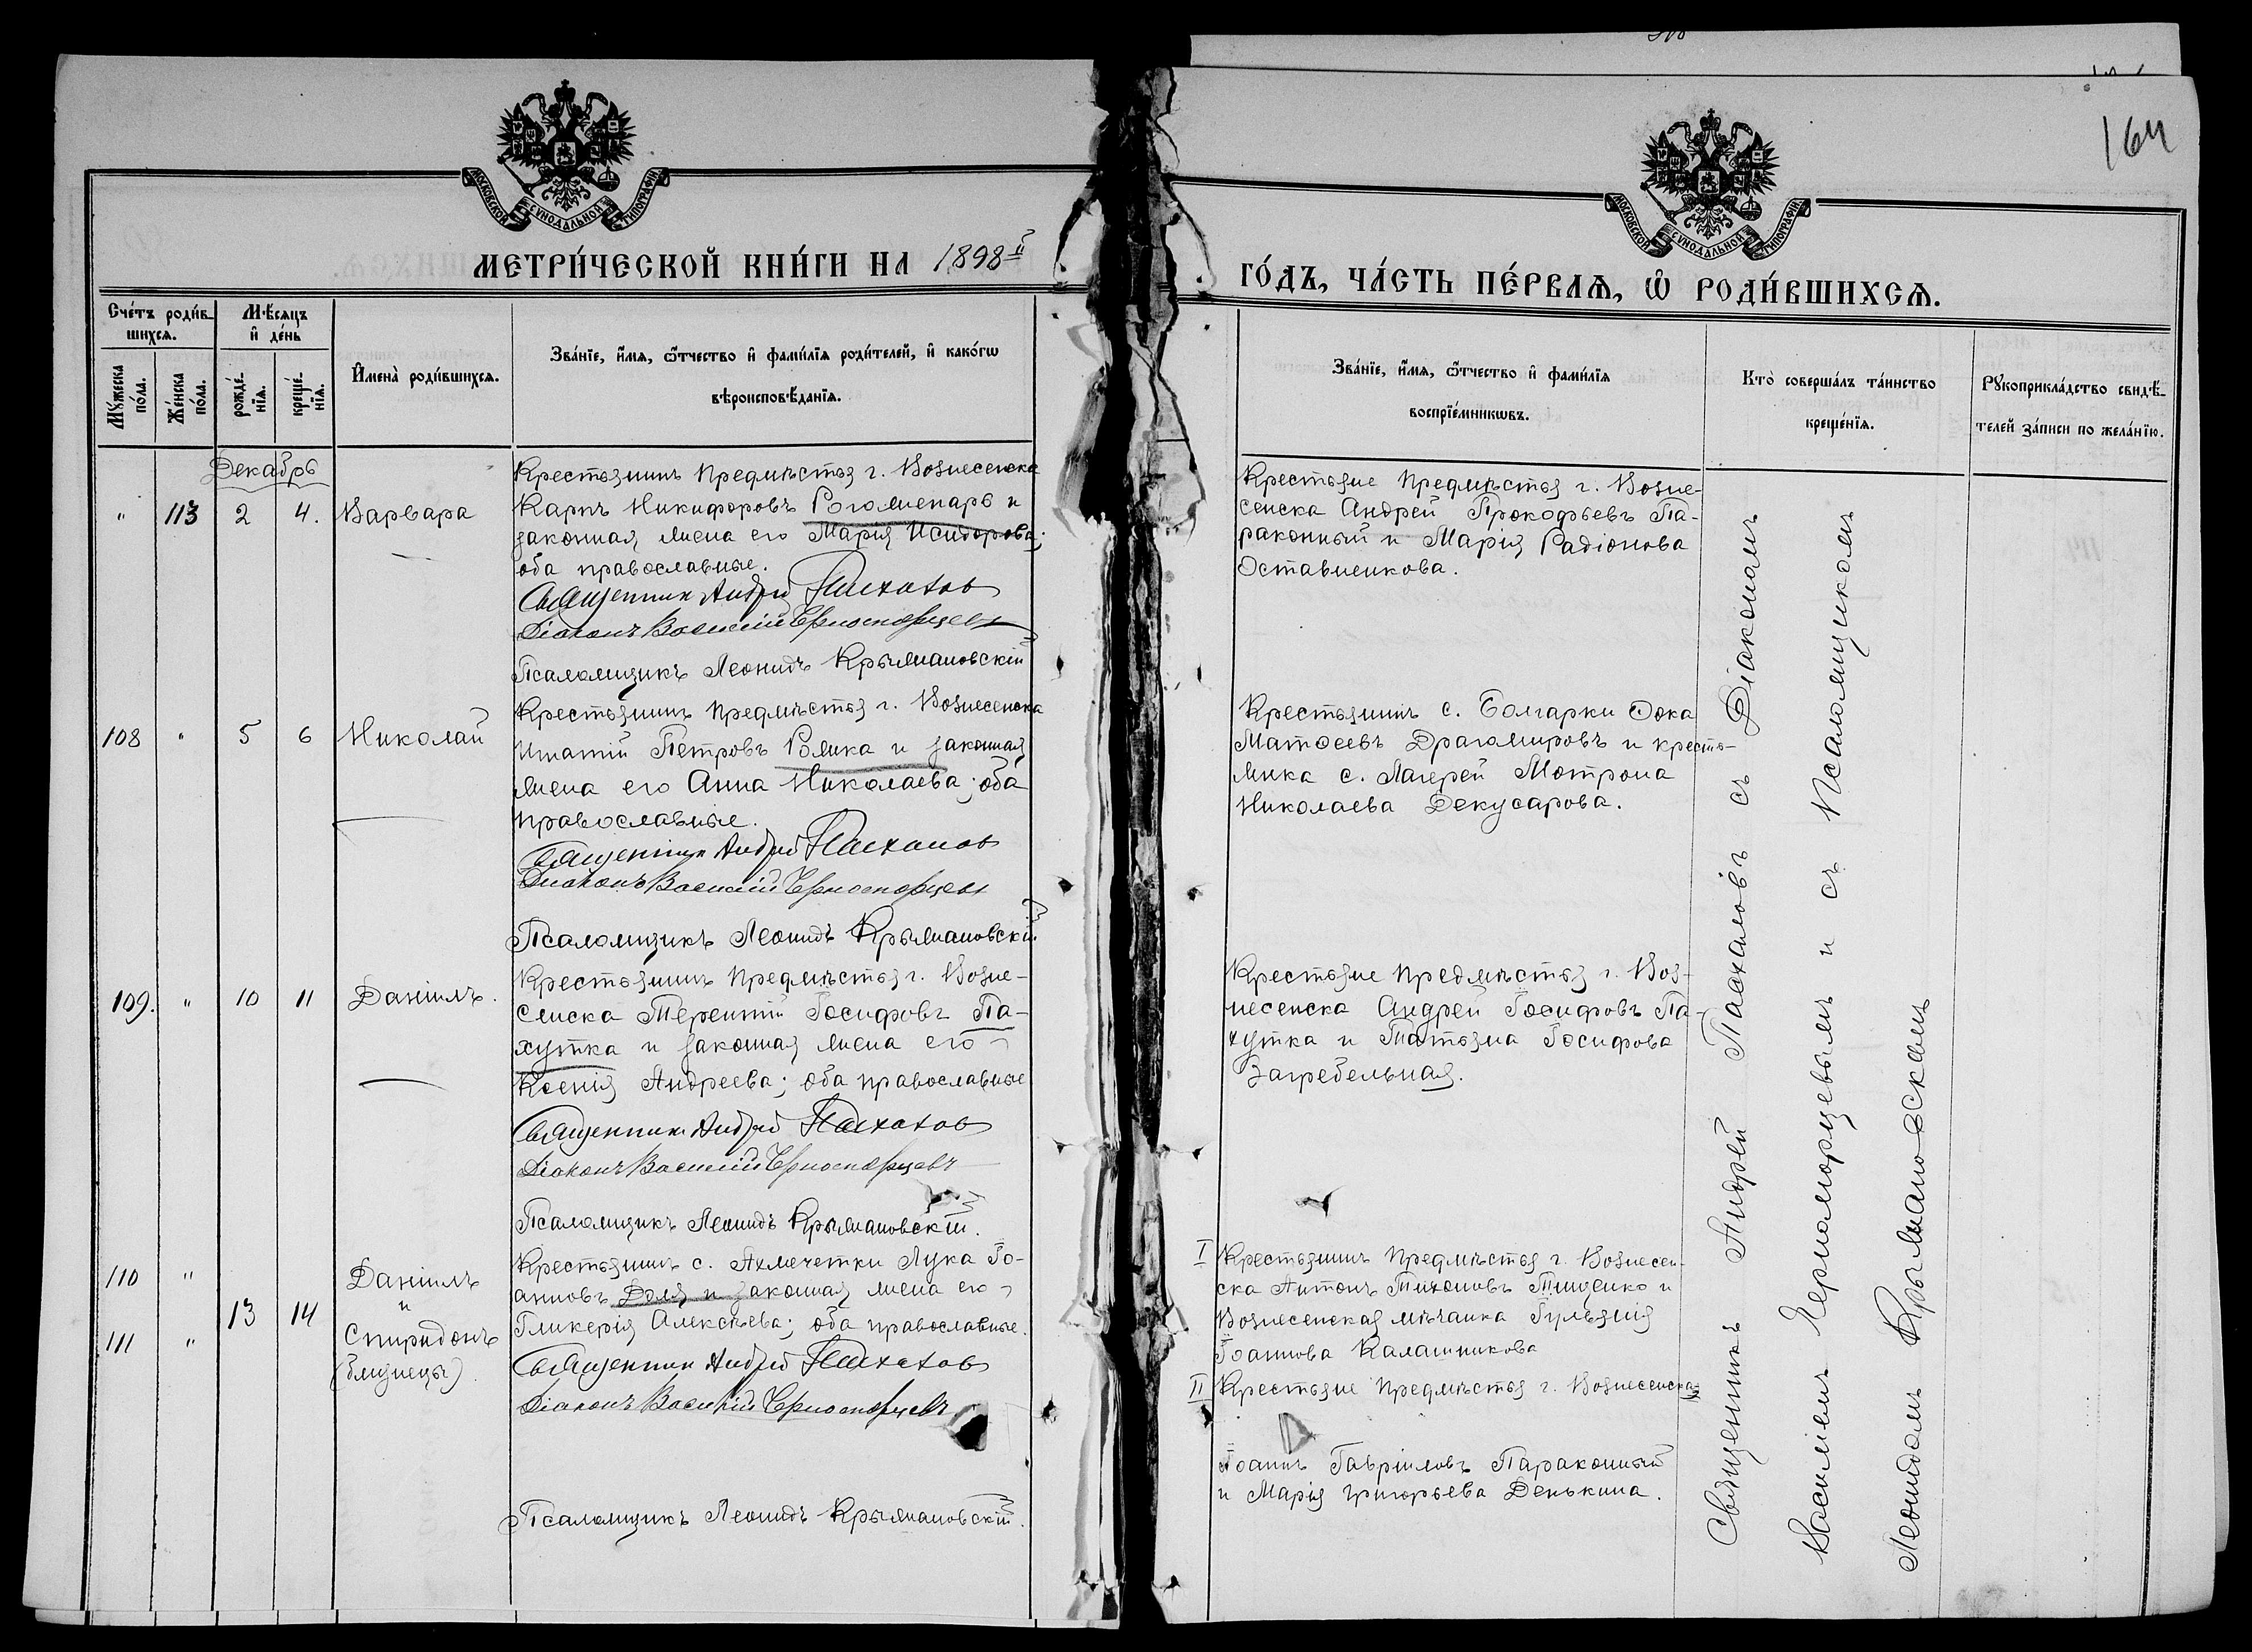 164
МОСКОВСКОЙ СѴНОДАЛЬНОЙ ТИПОГРАФІИ
МОСКОВСКОЙ СѴНОДАЛЬНОЙ ТИПОГРАФІИ
МЕТРИ́ЧЕСКОЙ КНИ́ГИ НА 1898й
ГО́ДЪ, ЧА́СТЬ ПЕ́РВАѦ, Ѡ РОДИ́ВШИХСѦ.
Сче́тъ роди́вшихсѧ.
Мѹ́жеска по́ла.
Же́нска по́ла.
Мѣ́сяцъ и де́нь
рожде́нїѧ.
креще́нїѧ.
И҆мена̀ роди́вшихсѧ.
Зва́нїе, и҆́мѧ, ѻ҆́тчество и҆ фами́лїѧ роди́телей, и҆ како́гѡ
вѣроисповѣ́данїѧ.
Зва́нїе, и҆́мѧ, ѻ҆́тчество и҆ фами́лїѧ
воспрїе́мникѡвъ.
Кто̀ соверша́лъ та́инство
креще́нїѧ.
Рѹкоприкла́дство свидѣ́-
телей за́писи по жела́нїю.
Декабрь
" 113 2 4. Варвара
Крестьянинъ предмѣстья г. Вознесенска
Карпъ Никифоровъ Рогоженаръ и
законная жена его Марія Исидорова;
оба православные.
Священник Андрей Пасхалов
Діаконъ Василій Черноморцевъ
Псаломщикъ Леонидъ Крыжановскій
Крестьяне предмѣстья г. Возне-
сенска Андрей Прокофьевъ Па-
раконный и Марія Радіонова
Оставненкова.
108 " 5 6 Николай
Крестьянинъ предмѣстья г. Вознесенска
Игнатій Петровъ Ромка и законная
жена его Анна Николаева; оба
православные.
Священник Андрей Пасхалов
Діаконъ Василій Черноморцевъ
Псаломщикъ Леонидъ Крыжановскій
Крестьянинъ с. Болгарки Ѳока
Матѳеевъ Драгомировъ и кресть-
янка с. Лагерей Мотрона
Николаева Декусарова.
109. " 10 11 Даніилъ.
Крестьянинъ предмѣстья г. Возне-
сенска Терентій Іосифовъ Па-
хутка и законная жена его
Ксенія Андреева; оба православные
Священник Андрей Пасхалов
Діаконъ Василій Черноморцевъ
Псаломщикъ Леонидъ Крыжановскій.
Крестьяне предмѣстья г. Воз-
несенска Андрей Іосифовъ Па-
хутка и Татьяна Іосифова
Загребельная.
110 "
111 "
13 14
Даніилъ
и
Спиридонъ
(близнецы).
Крестьянинъ с. Акмечетки Лука Іо-
анновъ Доля и законная жена его
Гликерія Алексѣева; оба православные.
Священник Андрей Пасхалов
Діаконъ Василій Черноморцевъ
Псаломщикъ Леонидъ Крыжановскій.
I Крестьянинъ предмѣстья г. Вознесен-
ска Антонъ Тихоновъ Тищенко и
Вознесенская мѣщанка Іуліянія
Іоаннова Калашникова
II Крестьяне предмѣстья г. Вознесенска
Іоаннъ Гавріиловъ Параконный
и Марія Григорьева Денькина.
Священникъ Андрей Пасхаловъ съ Діакономъ
Василіемъ Черноморцевымъ и съ Псаломщикомъ
Леонидомъ Крыжановскимъ